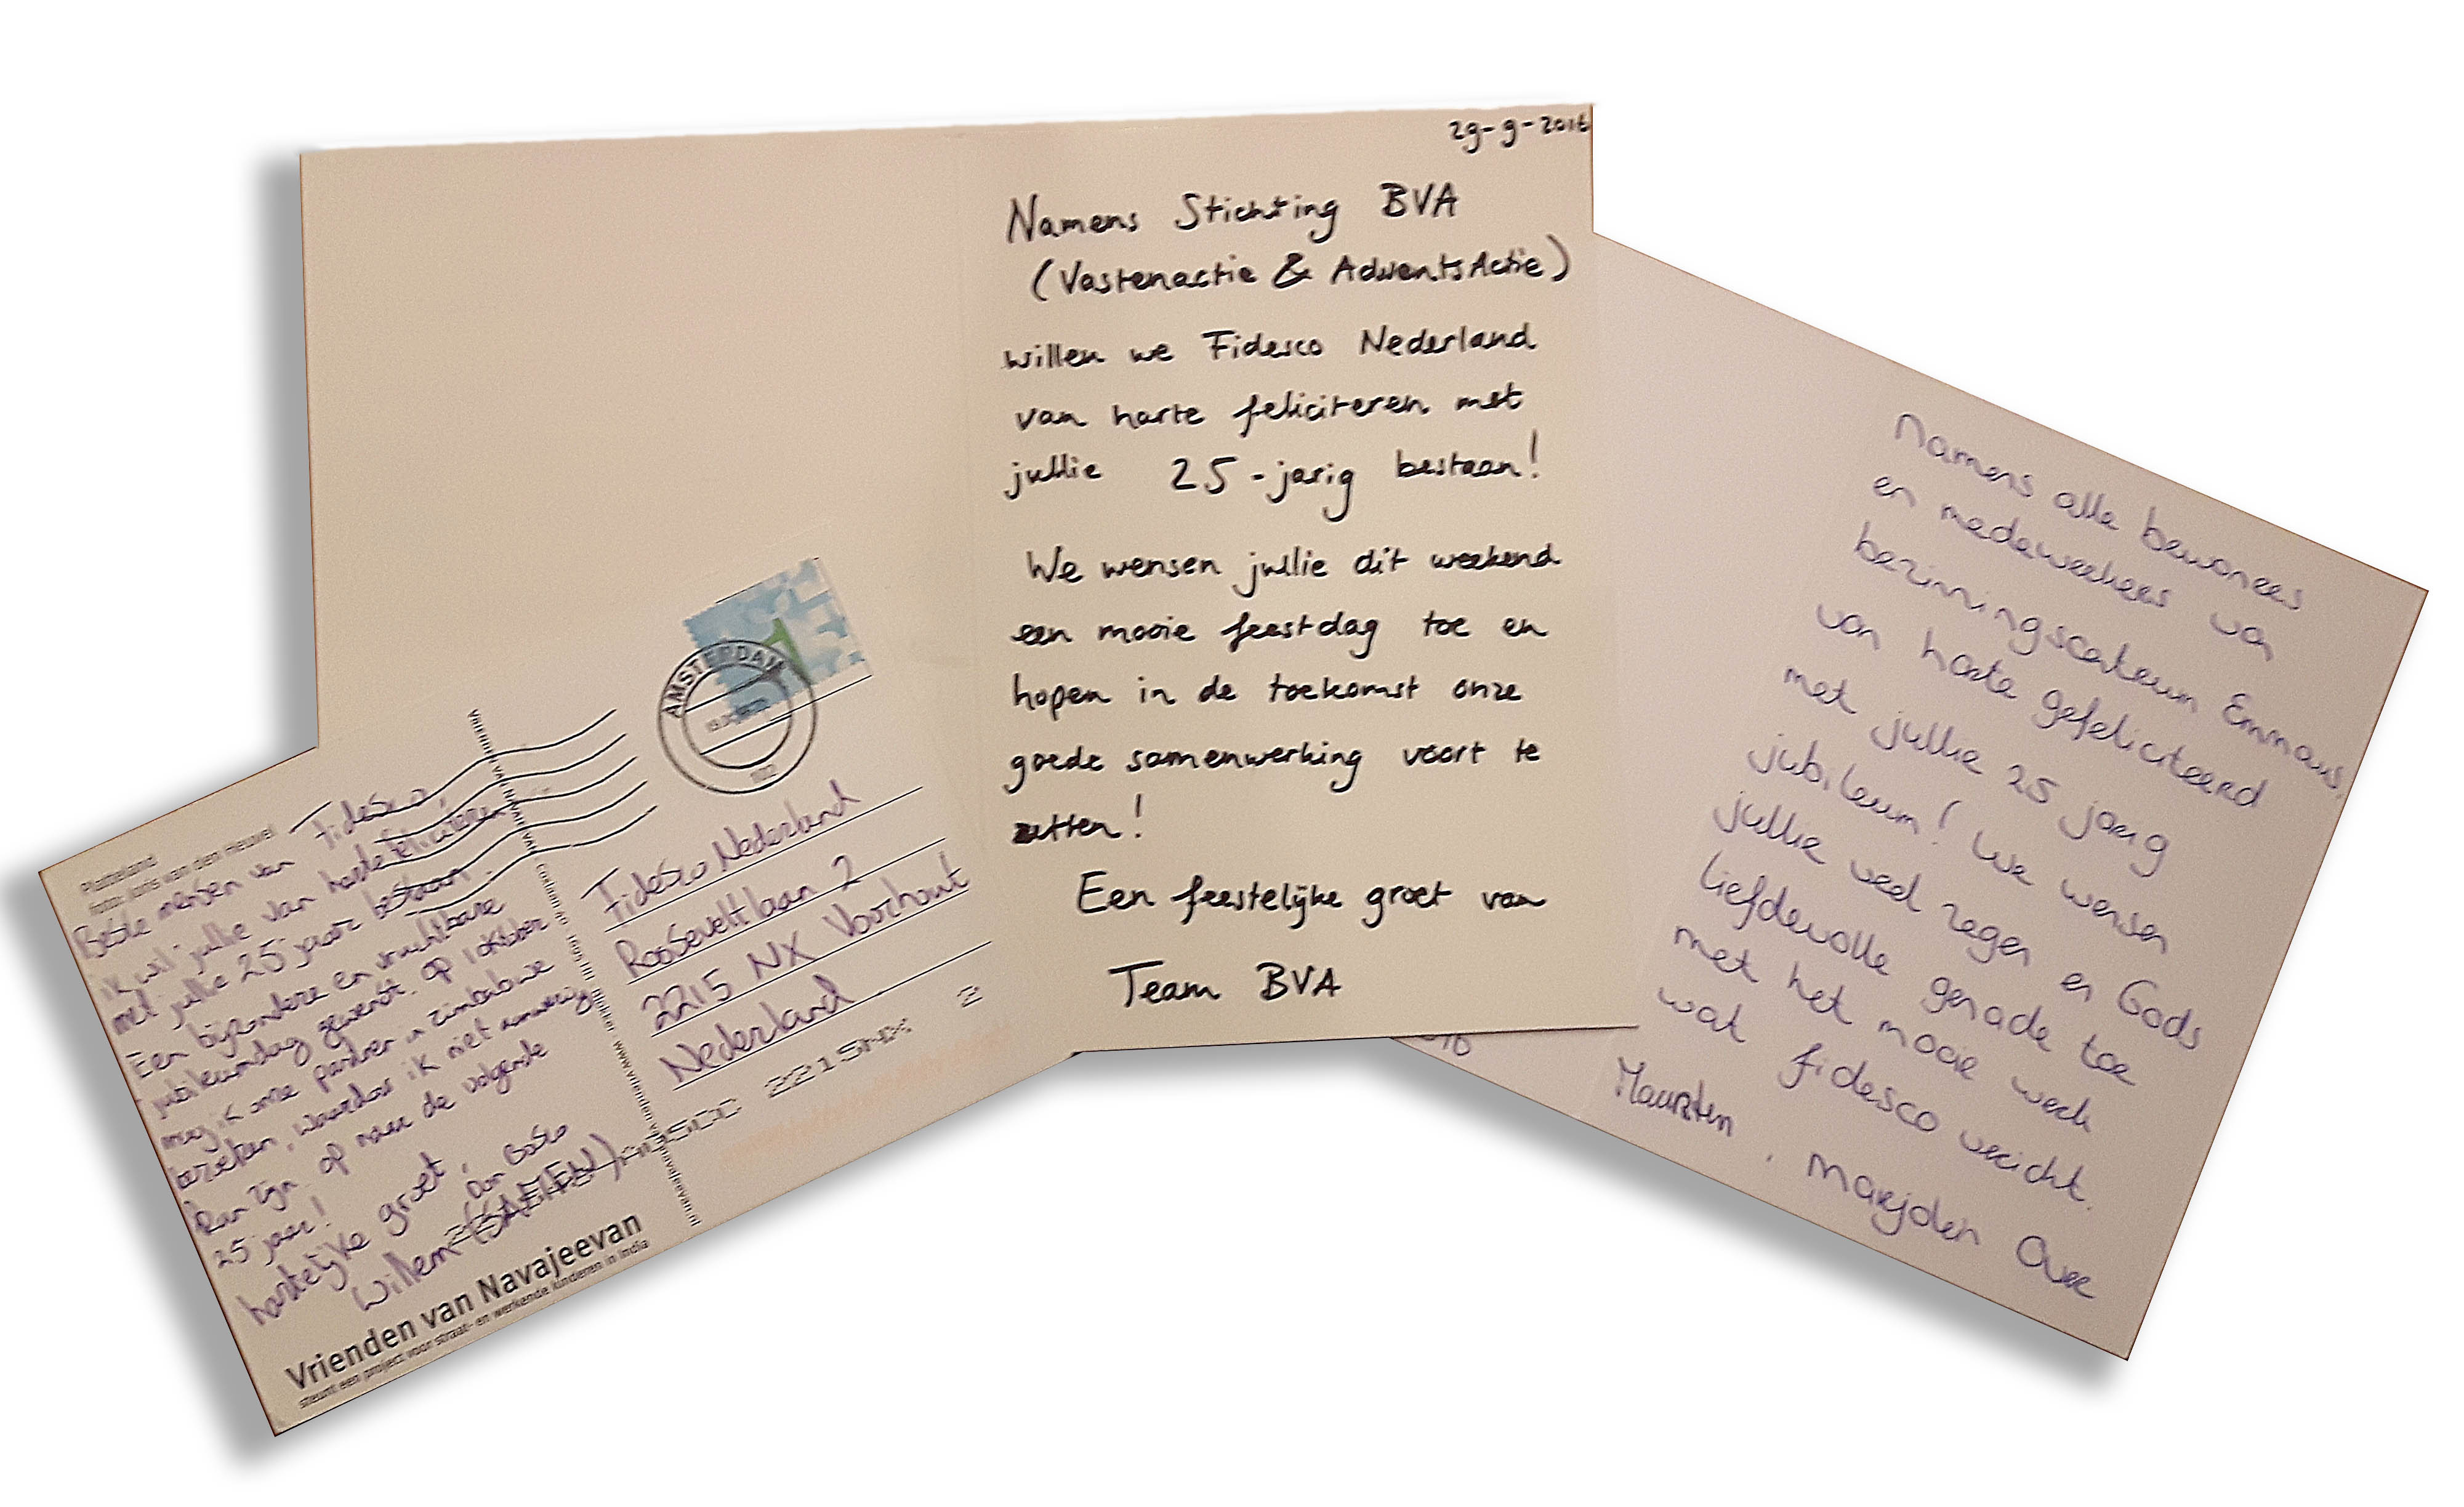 Plattteland
foto: Joris van den Heuvel
Beste mensen van Fidesco,
ik wil jullie van harte feliciteren
met jullie 25 jaar bestaan.
Een bijzondere en vruchtbare
jubileumdag gewenst. op 1 oktober
mag ik onze partner in Zimbabwe
bezoeken, waardoor ik niet aanwezig
kan zijn. op naar de volgende
25 jaar!
hartelijke groet,
Willem
Don Bosco
Vrienden van Navajeevan
steunt een project voor straat- en werkende kinderen in India
AMSTERDAM
Fidesco Nederland
Rooseveltlaan 2
2215 NX Voorhout
Nederland
2215NX 2
29-9-2016
Namens Stichting BVA
(Vastenactie & AdventsActie)
willen we Fidesco Nederland
van harte feliciteren met
jullie 25-jarig bestaan!
We wensen jullie dit weekend
een mooie feestdag toe en
hopen in de toekomst onze
goede samenwerking voort te
zetten!
Een feestelijke groet van
Team BVA
Namens alle bewoners
en medewerkers van
bezinningscentrum Emmaus,
van harte gefeliciteerd
met jullie 25 jarig
jubileum! We wensen
jullie veel zegen en Gods
liefdevolle genade toe
met het mooie werk
wat fidesco verricht.
Maarten, Marjolein